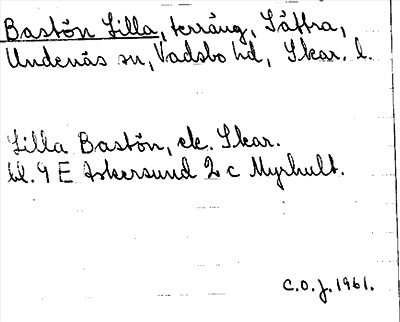 Bastön Lilla, terräng, Sätra,
Undenäs sn, Vadsbo hd, Skar. l.
Lilla Bastön, ek. Skar.
bl. 9 E Askersund 2 c Myrhult.
C.O.J. 1961.